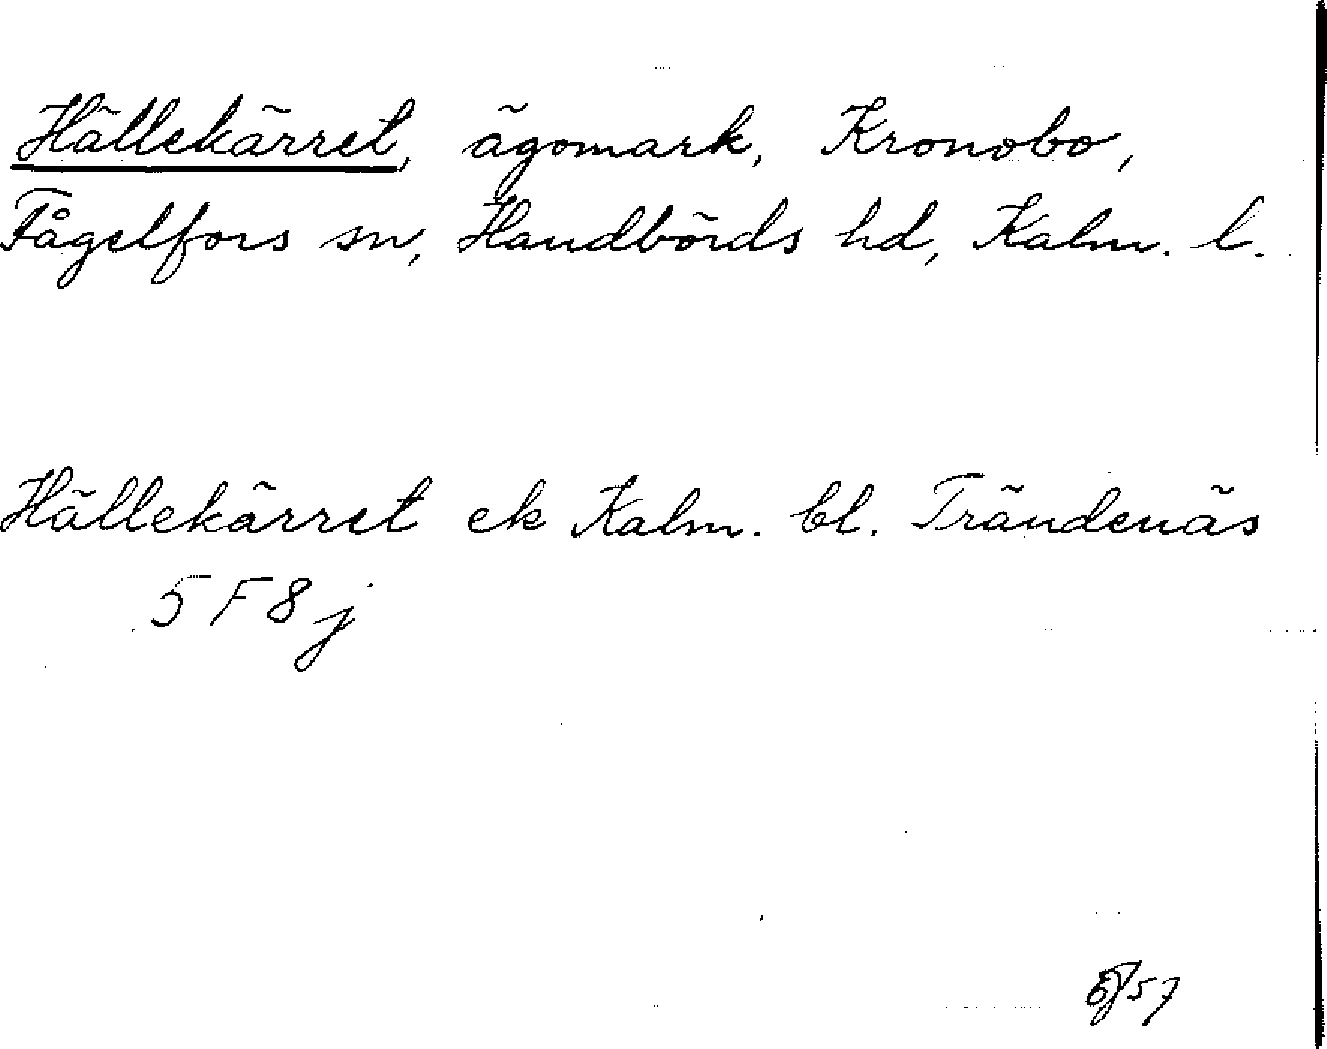 Hällekärret, ägomark, Kronobo,
Fågelfors sn, Handbörds hd, Kalm. l.
Hällekärret ek Kalm. bl. Trändenäs
5 F 8 j